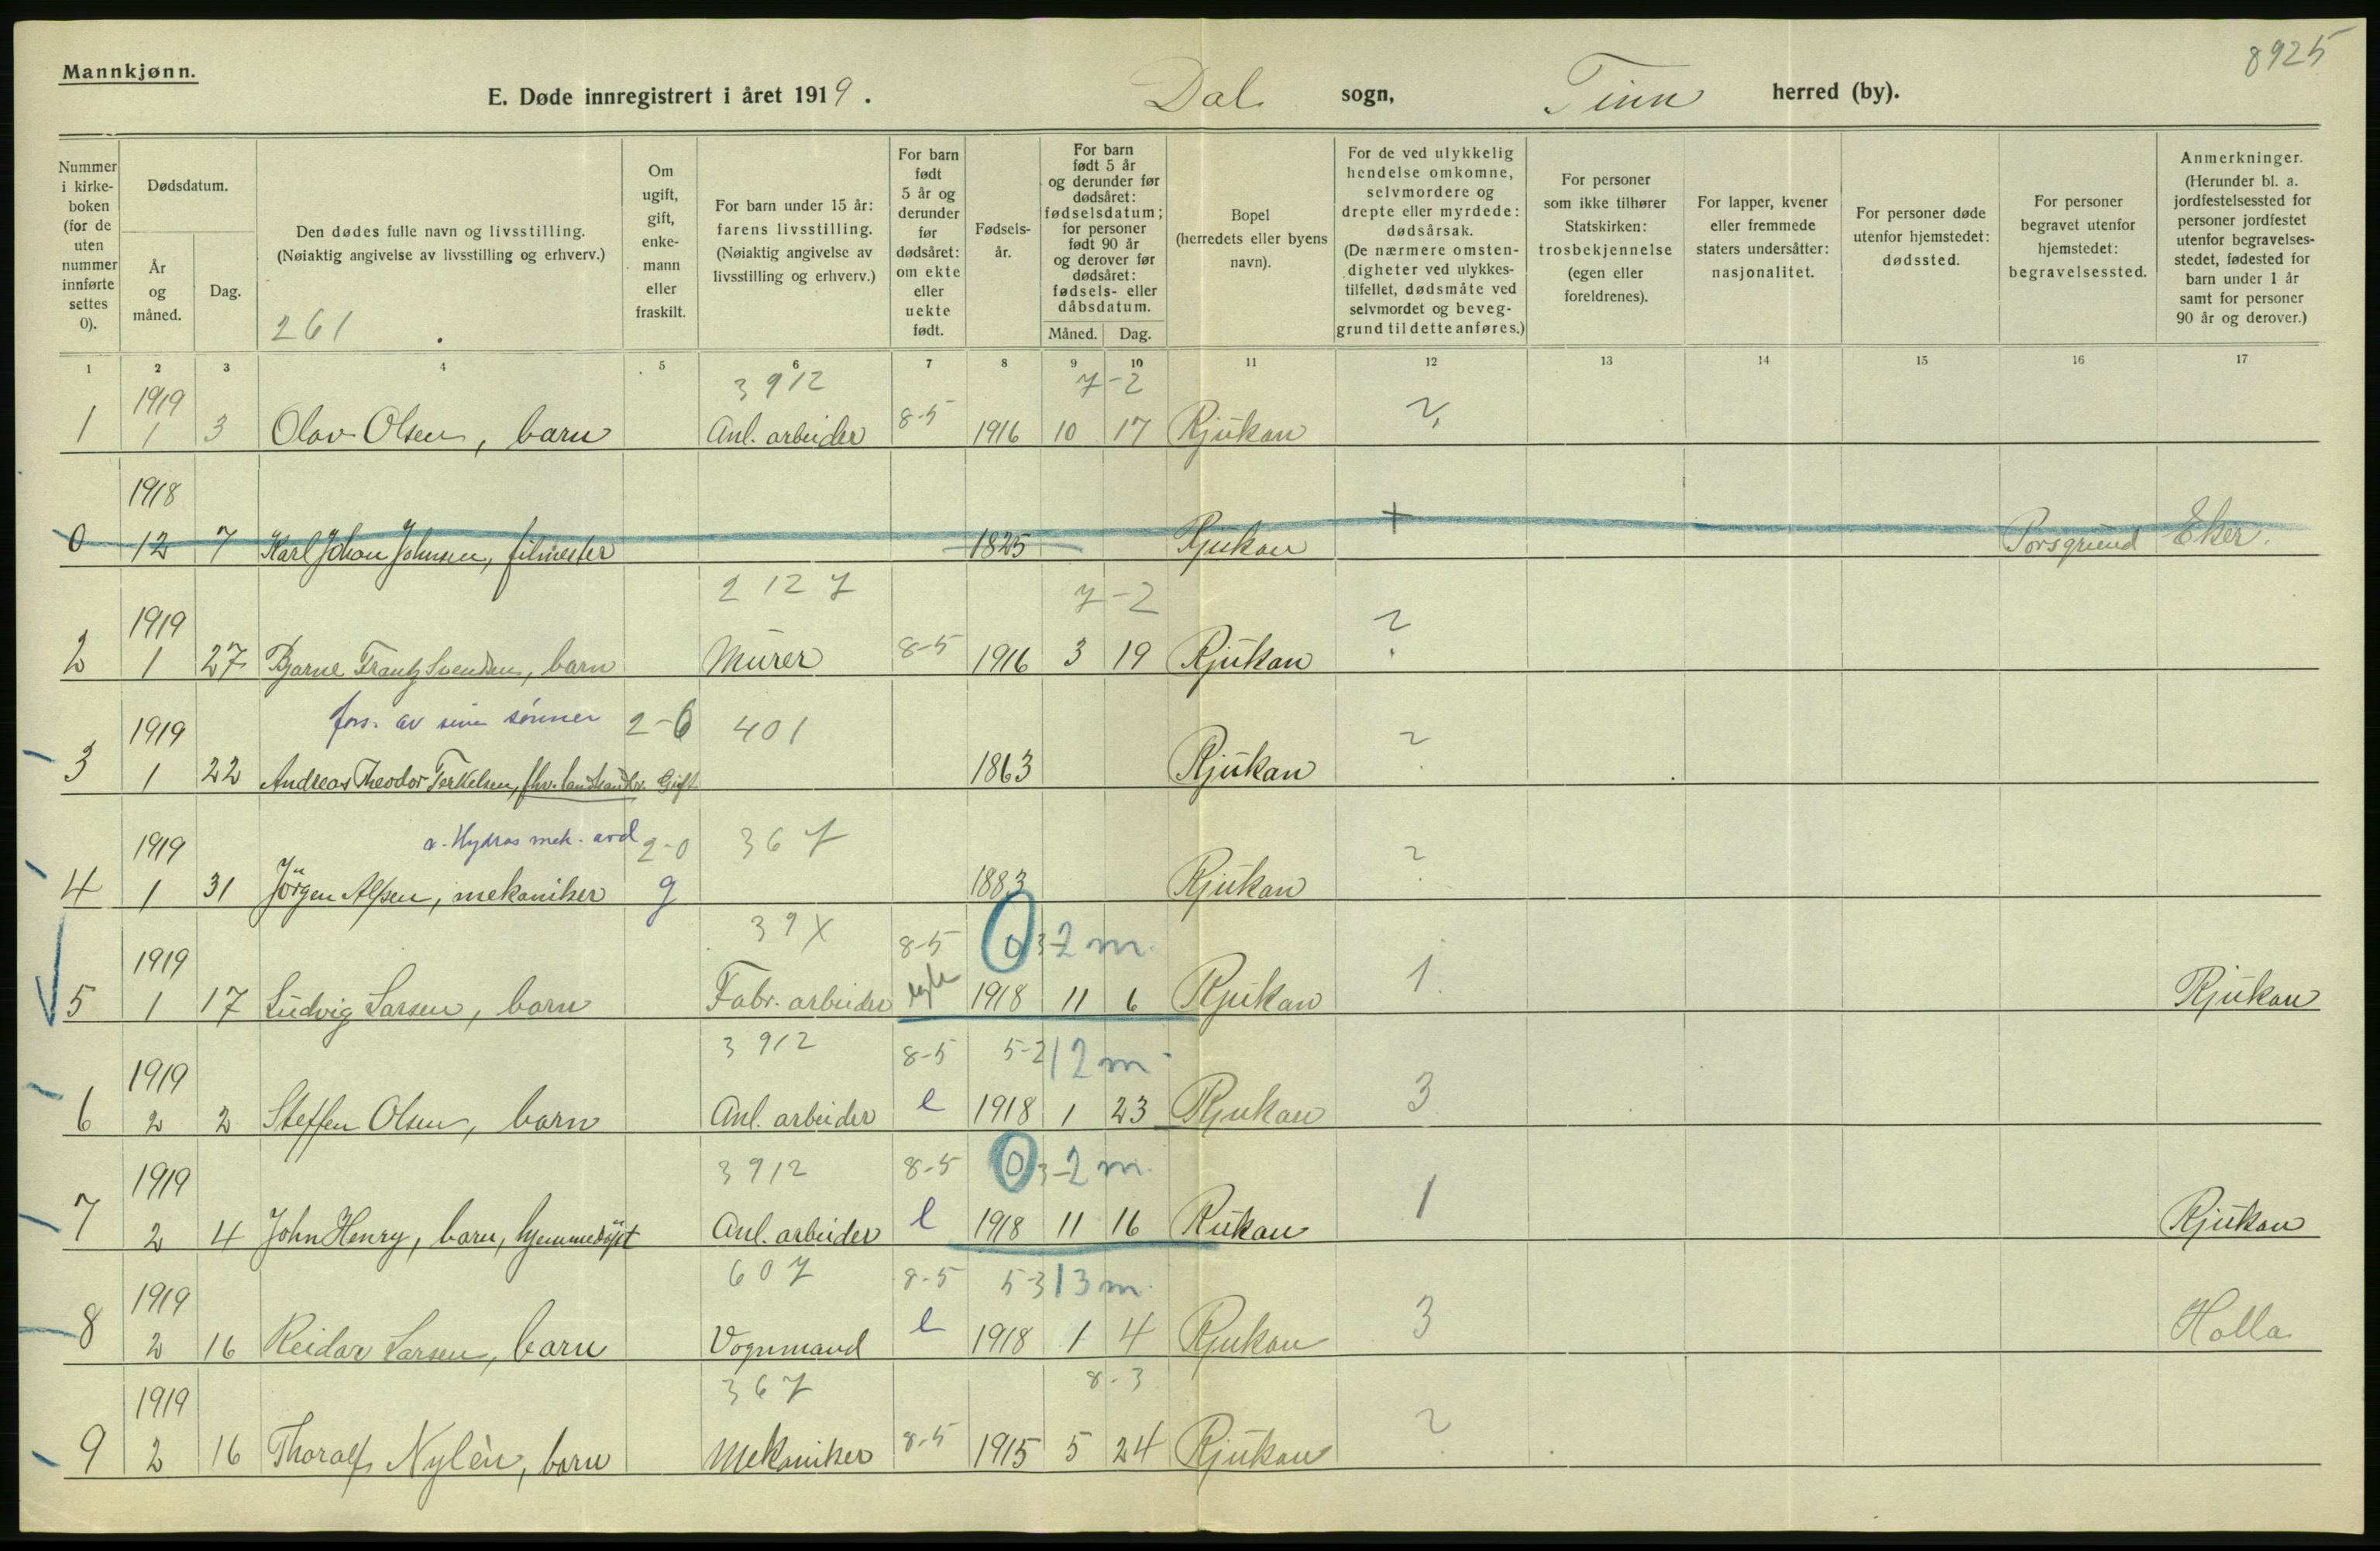 8925
Mannkjønn.
E. Døde innregistrert i året 1919. Dal sogn, Tinn herred (by).
Nummer i kirke- boken (for de uten nummer innførte settes 0).
Dødsdatum.
År og måned.
Dag.
Den dødes fulle navn og livsstilling.
(Nøiaktig angivelse av livsstilling og erhverv.)
261
Om ugift, gift, enke- mann eller fraskilt.
For barn under 15 år: farens livsstilling. (Nøiaktig angivelse av livsstilling og erhverv.)
For barn født 5 år og derunder før dødsåret: om ekte eller uekte født.
Fødsels- år.
For barn født 5 år og derunder før dødsåret: fødselsdatum; for personer født 90 år og derover før dødsåret: fødsels- eller dåbsdatum.
Måned. Dag.
Bopel (herredets eller byens navn).
For de ved ulykkelig hendelse omkomne, selvmordere og drepte eller myrdede: dødsårsak. (De nærmere omsten- digheter ved ulykkes- tilfellet, dødsmåte ved selvmordet og beveg- grund til dette anføres.)
For personer som ikke tilhører Statskirken: trosbekjennelse (egen eller foreldrenes).
For lapper, kvener eller fremmede staters undersåtter: nasjonalitet.
For personer døde utenfor hjemstedet: dødssted.
For personer begravet utenfor hjemstedet: begravelsessted.
Anmerkninger. (Herunder bl. a. jordfestelsessted for personer jordfestet utenfor begravelses- stedet, fødested for barn under 1 år samt for personer 90 år og derover.)
1 2 3 4 5 6 7 8 9 10 11 12 13 14 15 16 17
1919 3912 7-2
1 1 3 Olav Olsen, barn Anl. arbeider 8-5 1916 10 17 Rjukan ?
1918
0 12 7 Karl Johan Johnsen, filmester 1825 Rjukan + Porsgrund Eker.
1919 2127 7-2
2 1 27 Bjarne Frantz Svendsen, barn Murer 8-5 1916 3 19 Rjukan ?
1919 fors. av sine sönner 2-6 401
3 1 22 Andreas Theodor Terkelsen, fhv. landhandler. Gift 1863 Rjukan ?
1919 a. Hydros mek. avd 2-0 367
4 1 31 Jörgen Alfsen, mekaniker g 1883 Rjukan ?
1919 39X 8-5 0 3-2 m.
5 1 17 Ludvig Larsen, barn Fabr. arbeider 1918 11 6 Rjukan 1. Rjukan
1919 3912 8-5 5-2 12 m.
6 2 2 Steffen Olsen, barn Anl. arbeider e 1918 1 23 Rjukan 3
1919 3912 8-5 0 3-2 m.
7 2 4 John Henry, barn, hjemmedöpt Anl. arbeider e 1918 11 16 Rukan 1 Rjukan
1919 607 8-5 5-3 13 m.
8 2 16 Reidar Larsen, barn Vognmand e 1918 1 4 Rjukan 3 Holla
1919 367 8-3
9 2 16 Thoralf Nylèn, barn Mekaniker 8-5 1915 5 24 Rjukan ?